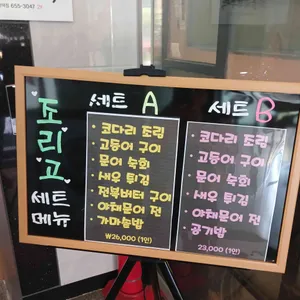 655-3047
조리고
세트
메뉴
세트 A
• 코다리 조림
• 고등어 구이
• 문어 숙회
• 새우 튀김
• 전복버터 구이
• 야채문어 전
• 가마솥밥
₩26,000 (1인)
세트 B
• 코다리 조림
• 고등어 구이
• 문어 숙회
• 새우 튀김
• 야채문어 전
• 공기밥
23,000 (1인)